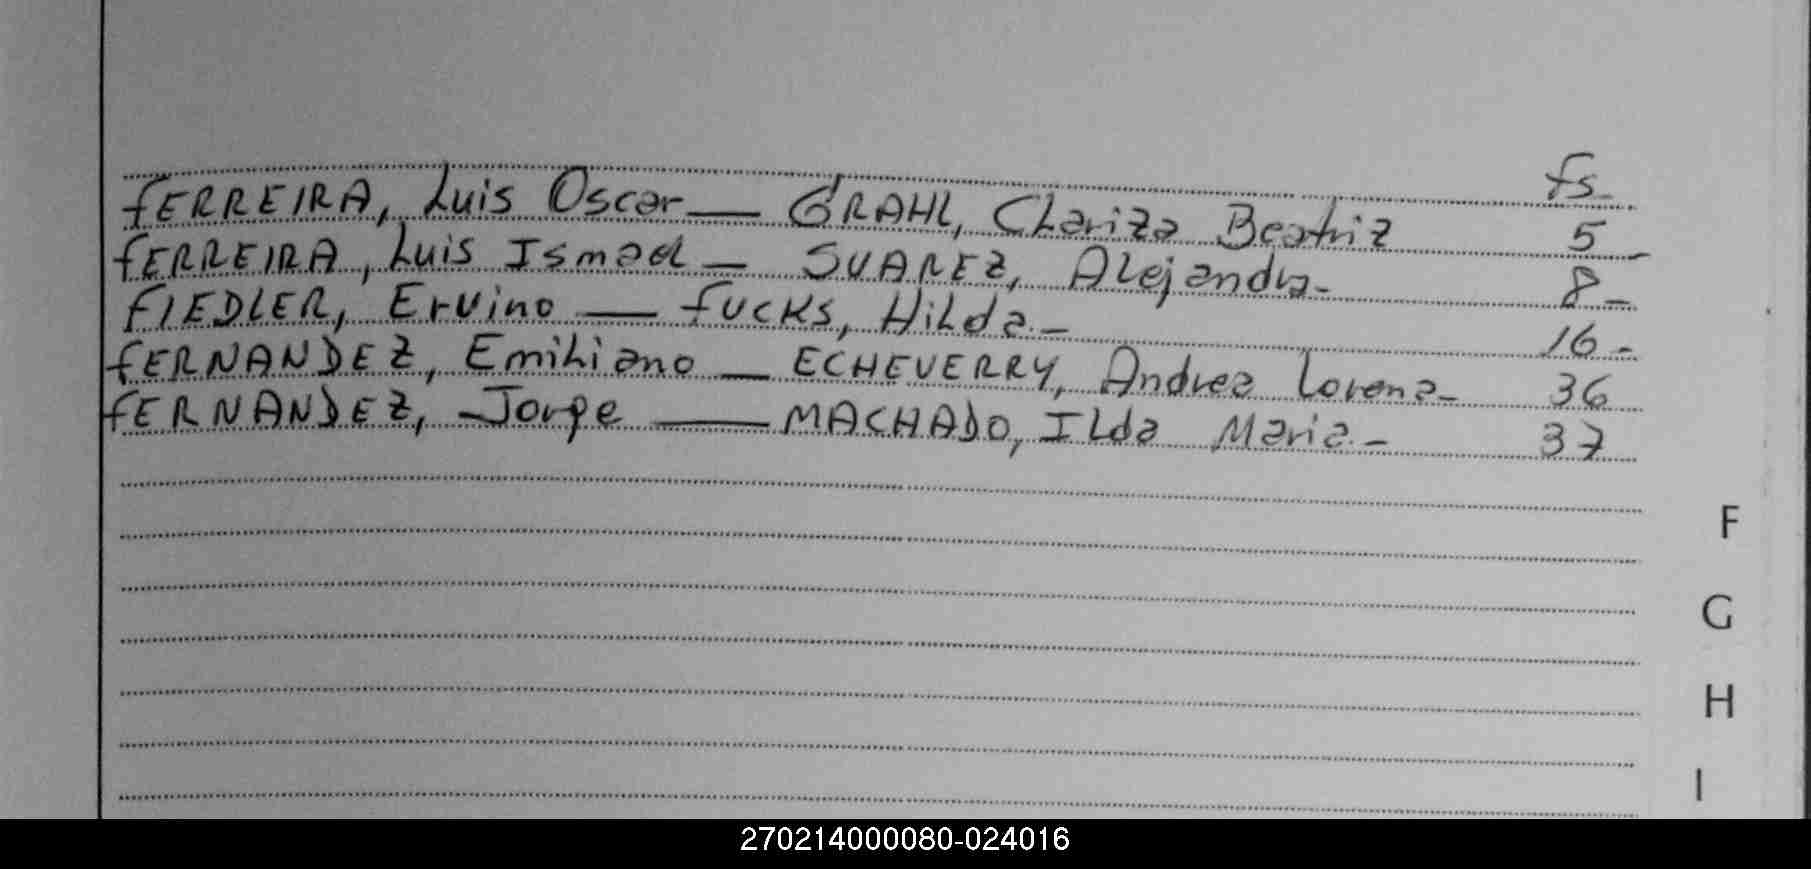 fs-
FERREIRA, Luis Oscar — GRAHL, Clariza Beatriz 5
FERREIRA, Luis Ismael — SUAREZ, Alejandra- 8-
FIEDLER, Ervino — FUCKS, Hilda- 16-
FERNANDEZ, Emiliano — ECHEVERRY, Andrea Lorena- 36
FERNANDEZ, Jorge — MACHADO, Ilda Maria- 37
F
G
H
I
270214000080-024016